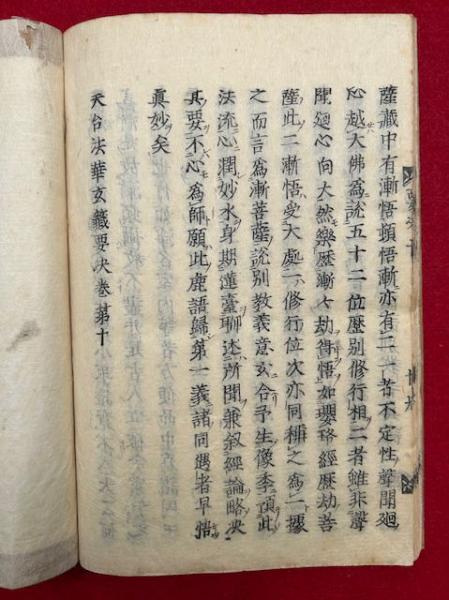 薩藏中有漸悟頓悟漸亦有二一者不定性聲聞廻
心越大佛為說五十二位歷別修行相二者雖非聲
聞廻心向大然樂歷漸七劫得悟如瓔珞經歷劫菩
薩此二漸悟受大處一修行位次亦同稱之為一據
之而言為漸菩薩說別教義意玄合予生像季頂此
法流心潤妙水身期蓮臺聊述所聞兼叙經論略決
其要不心為師願此麁語歸第一義諸同遇者早悟
真妙矣
天台法華玄籤要決卷第十